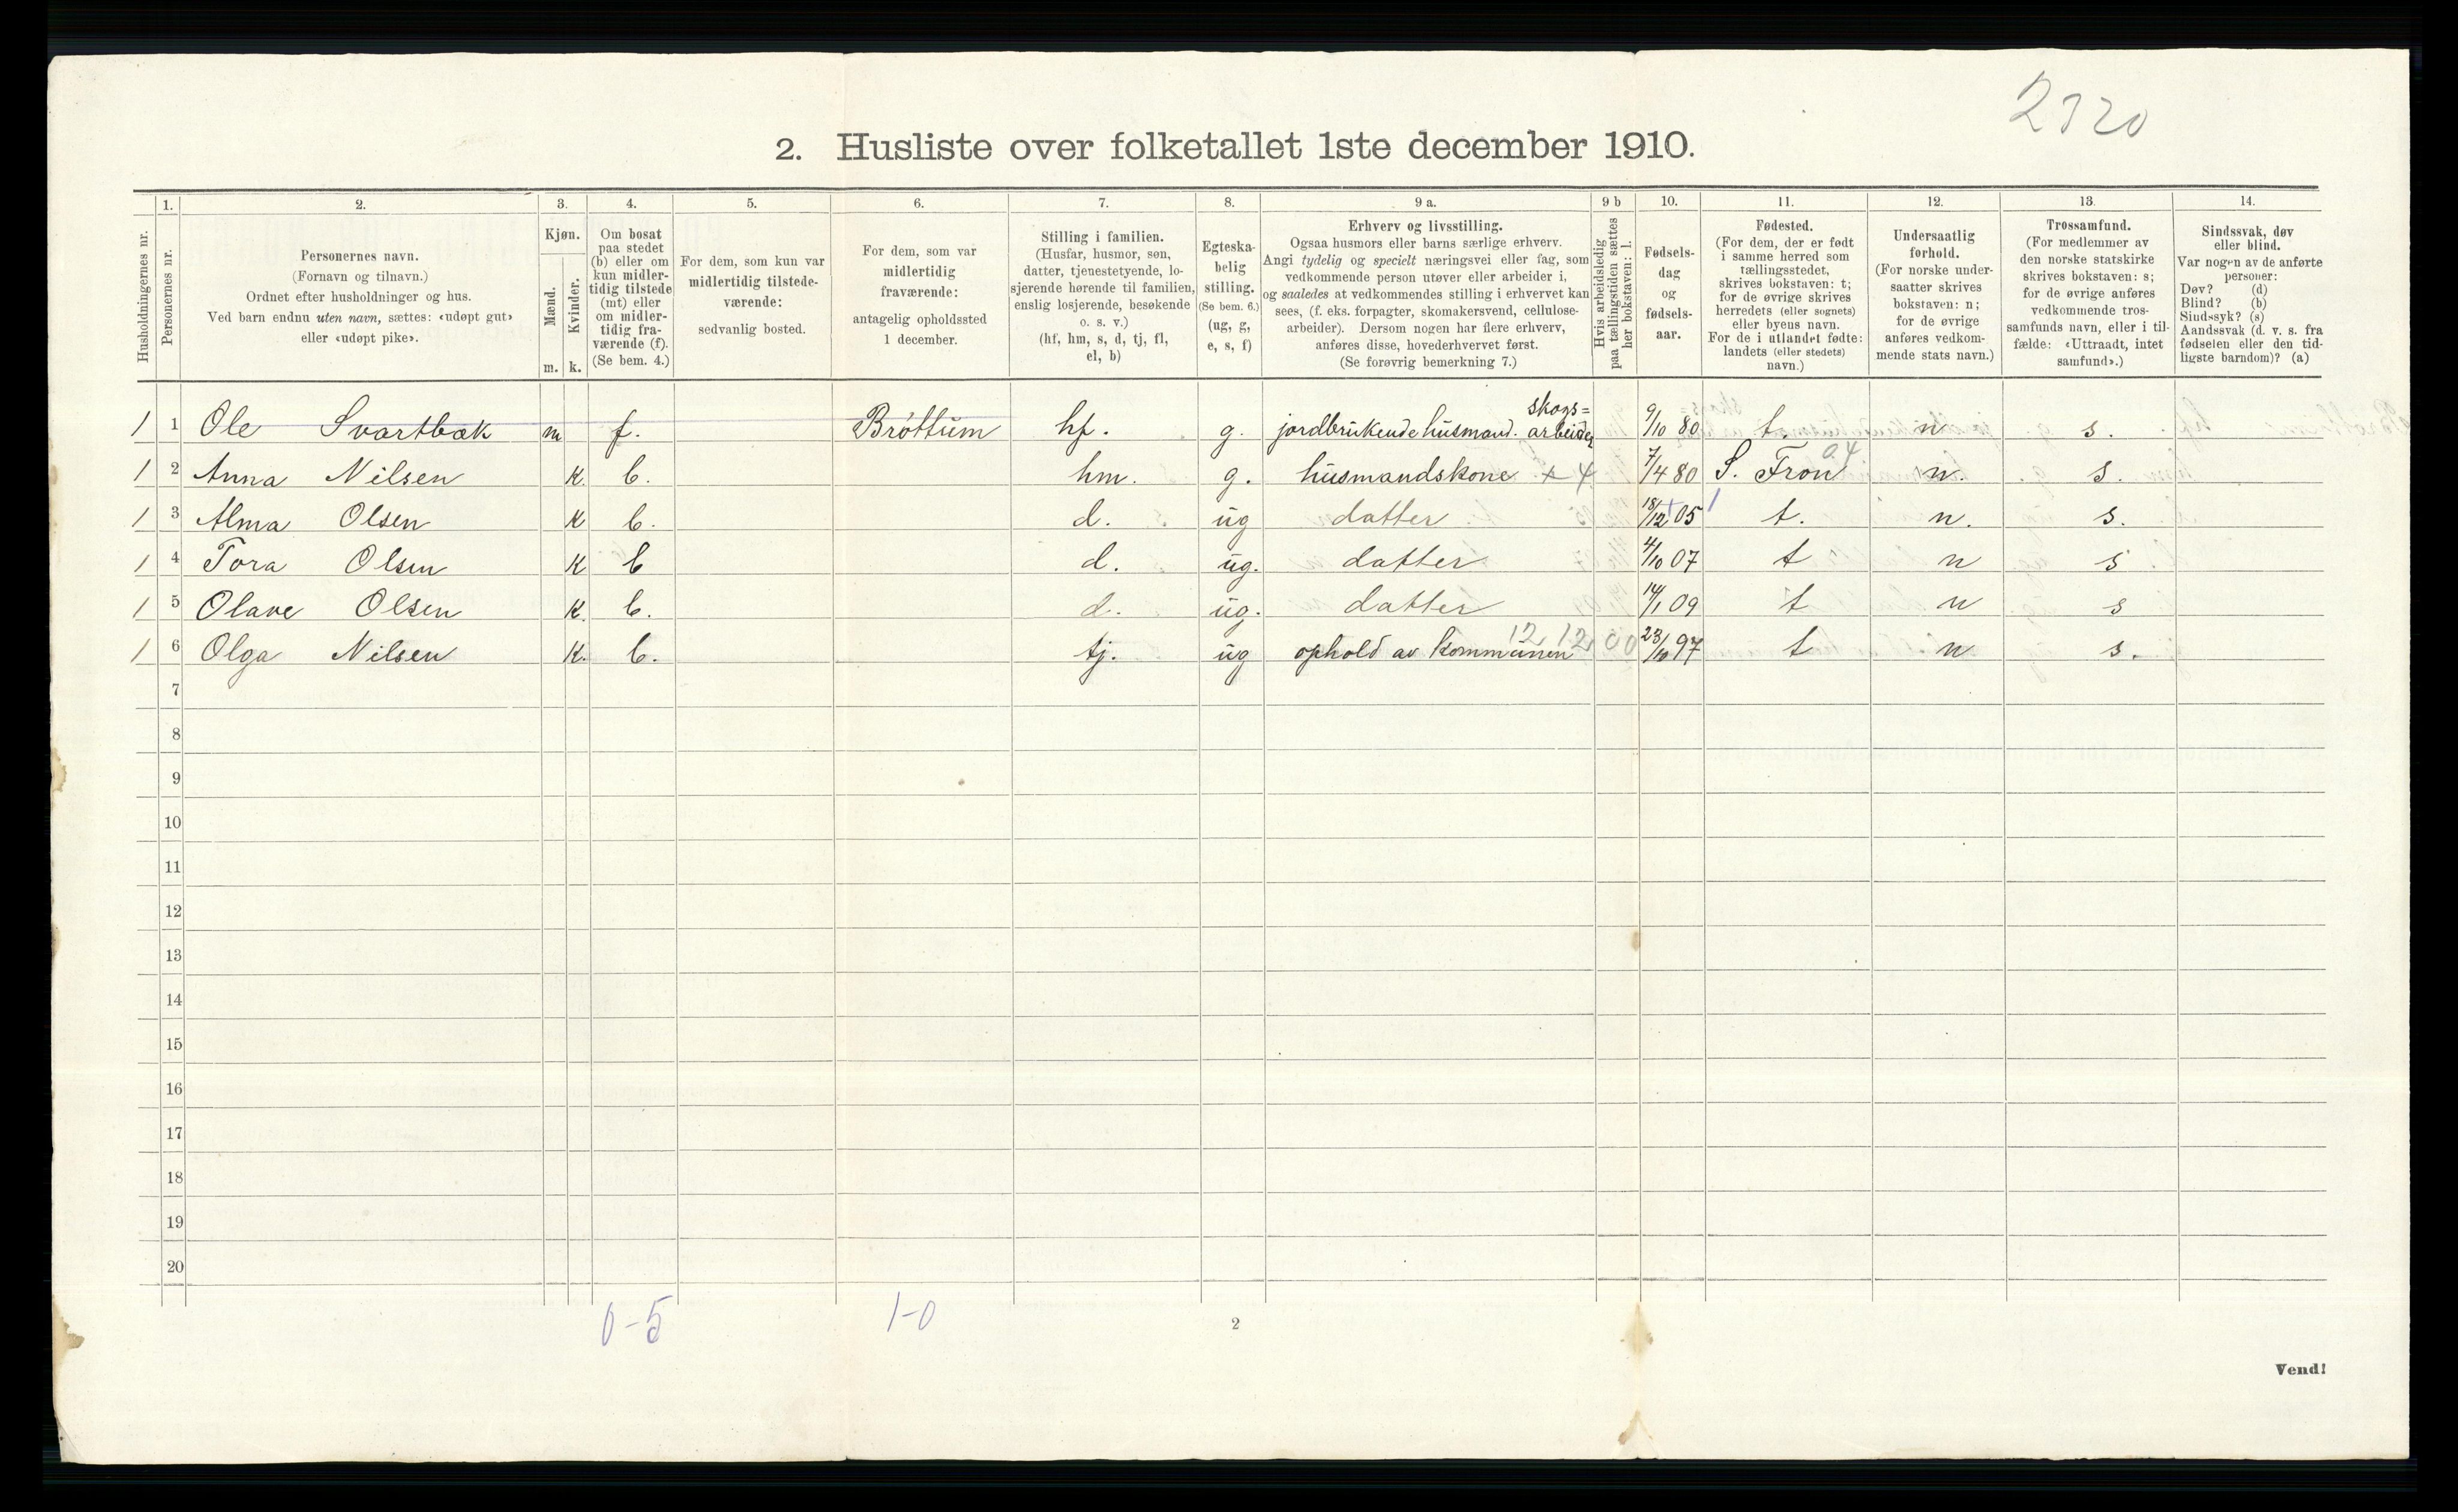 2320
2. Husliste over folketallet 1ste december 1910.
1. 2. 3. 4. 5. 6. 7. 8. 9 a. 9 b 10. 11. 12. 13. 14.
Husholdningernes nr.
Personernes nr.
Personernes navn.
(Fornavn og tilnavn.)
Ordnet efter husholdninger og hus.
Ved barn endnu uten navn, sættes: «udøpt gut»
eller «udøpt pike».
Kjøn.
Mænd.
Kvinder.
m. k.
Om bosat
paa stedet
(b) eller om
kun midler-
tidig tilstede
(mt) eller
om midler-
tidig fra-
værende (f).
(Se bem. 4.)
For dem, som kun var
midlertidig tilstede-
værende:
sedvanlig bosted.
For dem, som var
midlertidig
fraværende:
antagelig opholdssted
1 december.
Stilling i familien.
(Husfar, husmor, søn,
datter, tjenestetyende, lo-
sjerende hørende til familien,
enslig losjerende, besøkende
o. s. v.)
(hf, hm, s, d, tj, fl,
el, b)
Egteska-
belig
stilling.
(Se bem. 6.)
(ug, g,
e, s, f)
Erhverv og livsstilling.
Ogsaa husmors eller barns særlige erhverv.
Angi tydelig og specielt næringsvei eller fag, som
vedkommende person utøver eller arbeider i,
og saaledes at vedkommendes stilling i erhvervet kan
sees, (f. eks. forpagter, skomakersvend, cellulose-
arbeider). Dersom nogen har flere erhverv,
anføres disse, hovederhvervet først.
(Se forøvrig bemerkning 7.)
Hvis arbeidsledig
paa tællingstiden sættes
her bokstaven: l.
Fødsels-
dag
og
fødsels-
aar.
Fødested.
(For dem, der er født
i samme herred som
tællingsstedet,
skrives bokstaven: t;
for de øvrige skrives
herredets (eller sognets)
eller byens navn.
For de i utlandet fødte:
landets (eller stedets)
navn.)
Undersaatlig
forhold.
(For norske under-
saatter skrives
bokstaven: n;
for de øvrige
anføres vedkom-
mende stats navn.)
Trossamfund.
(For medlemmer av
den norske statskirke
skrives bokstaven: s;
for de øvrige anføres
vedkommende tros-
samfunds navn, eller i til-
fælde: «Uttraadt, intet
samfund».)
Sindssvak, døv
eller blind.
Var nogen av de anførte
personer:
Døv? (d)
Blind? (b)
Sindssyk? (s)
Aandssvak (d. v. s. fra
fødselen eller den tid-
ligste barndom)? (a)
1 1 Ole Svartbæk m f. Brøttum hf. g. jordbrukende husmand. skogs=arbeider 9/10 80 t. n s.
1 2 Anna Nilsen K. b. hm. g. husmandskone x 4 7/4 80 S. Fron 04 n. s.
1 3 Alma Olsen K b. d. ug datter 18/12 05 t. n. s.
1 4 Tora Olsen K b d. ug. datter 4/10 07 t n s
1 5 Olave Olsen K. b. d. ug. datter 14/1 09 t n s
1 6 Olga Nilsen K. b. tj. ug ophold av kommunen 12 12 00 23/10 97 t n s.
7
8
9
10
11
12
13
14
15
16
17
18
19
20
0-5 1-0
2
Vend!